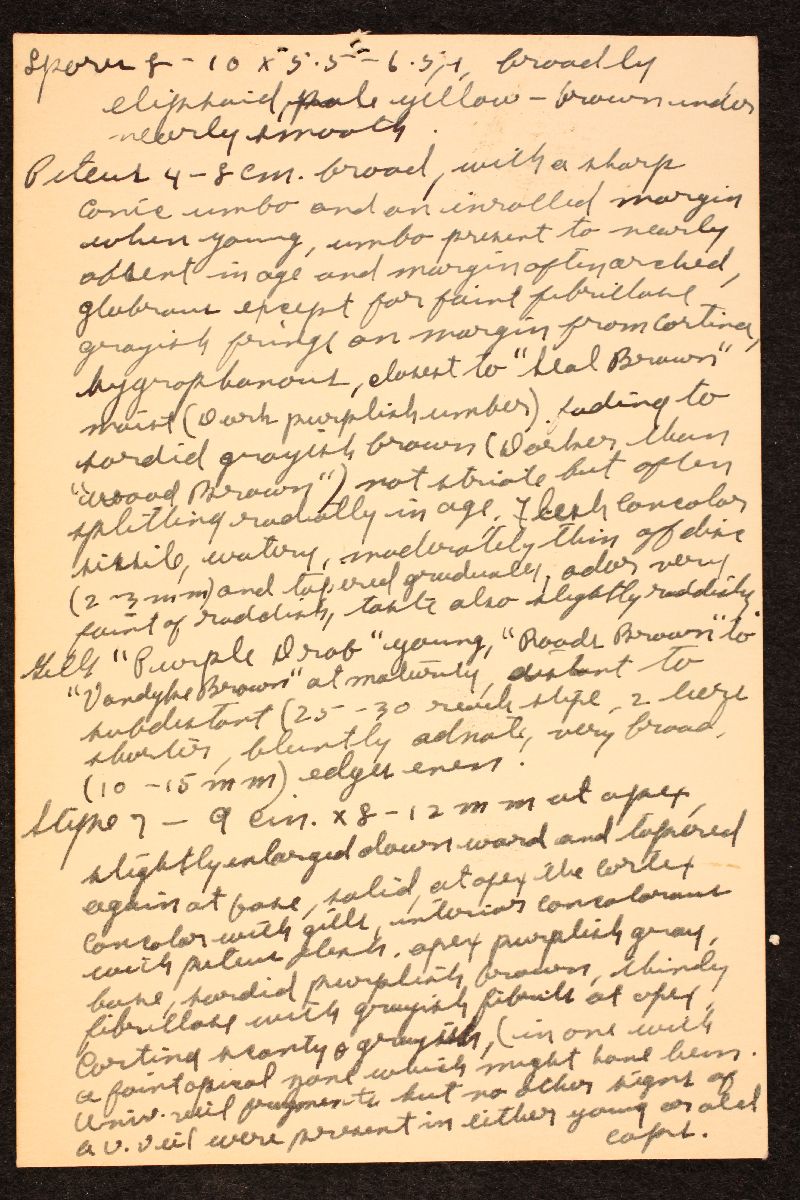 Spores 8 - 10 x 5.5 - 6.5 μ, broadly
elipsoid, pale yellow - brown under
nearly smooth.
Pileus 4 - 8 cm. broad, with a sharp
conic umbo and an inrolled margin
when young, umbo present to nearly
absent in age and margin often arched,
glabrous except for faint fibrillose
grayish fringe on margin from cortina,
hygrophanous, closest to "Seal Brown"
moist (Dark purplish umber) fading to
sordid grayish brown (Darker than
"wood Brown") not striate but often
splitting radially in age. Flesh concolor
sissile, watery, moderately thin of disc
(2-3 mm) and tapered gradually, odor very
faint of raddish, taste also slightly raddishy.
Gills "Purple Drab" young, "Roods Brown" to
"Vandyke Brown" at maturity, distant to
subdistant (25 - 30 reach stipe, 2 tiers
shorter, bluntly adnate, very broad,
(10 - 15 mm) edges even.
Stipe 7 - 9 cm. x 8 - 12 mm at apex,
slightly enlarged downward and tapered
again at base, solid, at apex the cortex
concolor with gills, interior concolorous
with pileus flesh. apex purplish gray,
base, sordid purplish brown, thinly
fibrillose with grayish fibrils at apex,
Cortina scanty grayish, (in one with
a faint apical zone which might have been
univ. veil fragments but no other signs of
a u. veil were present in either young or old
caps.